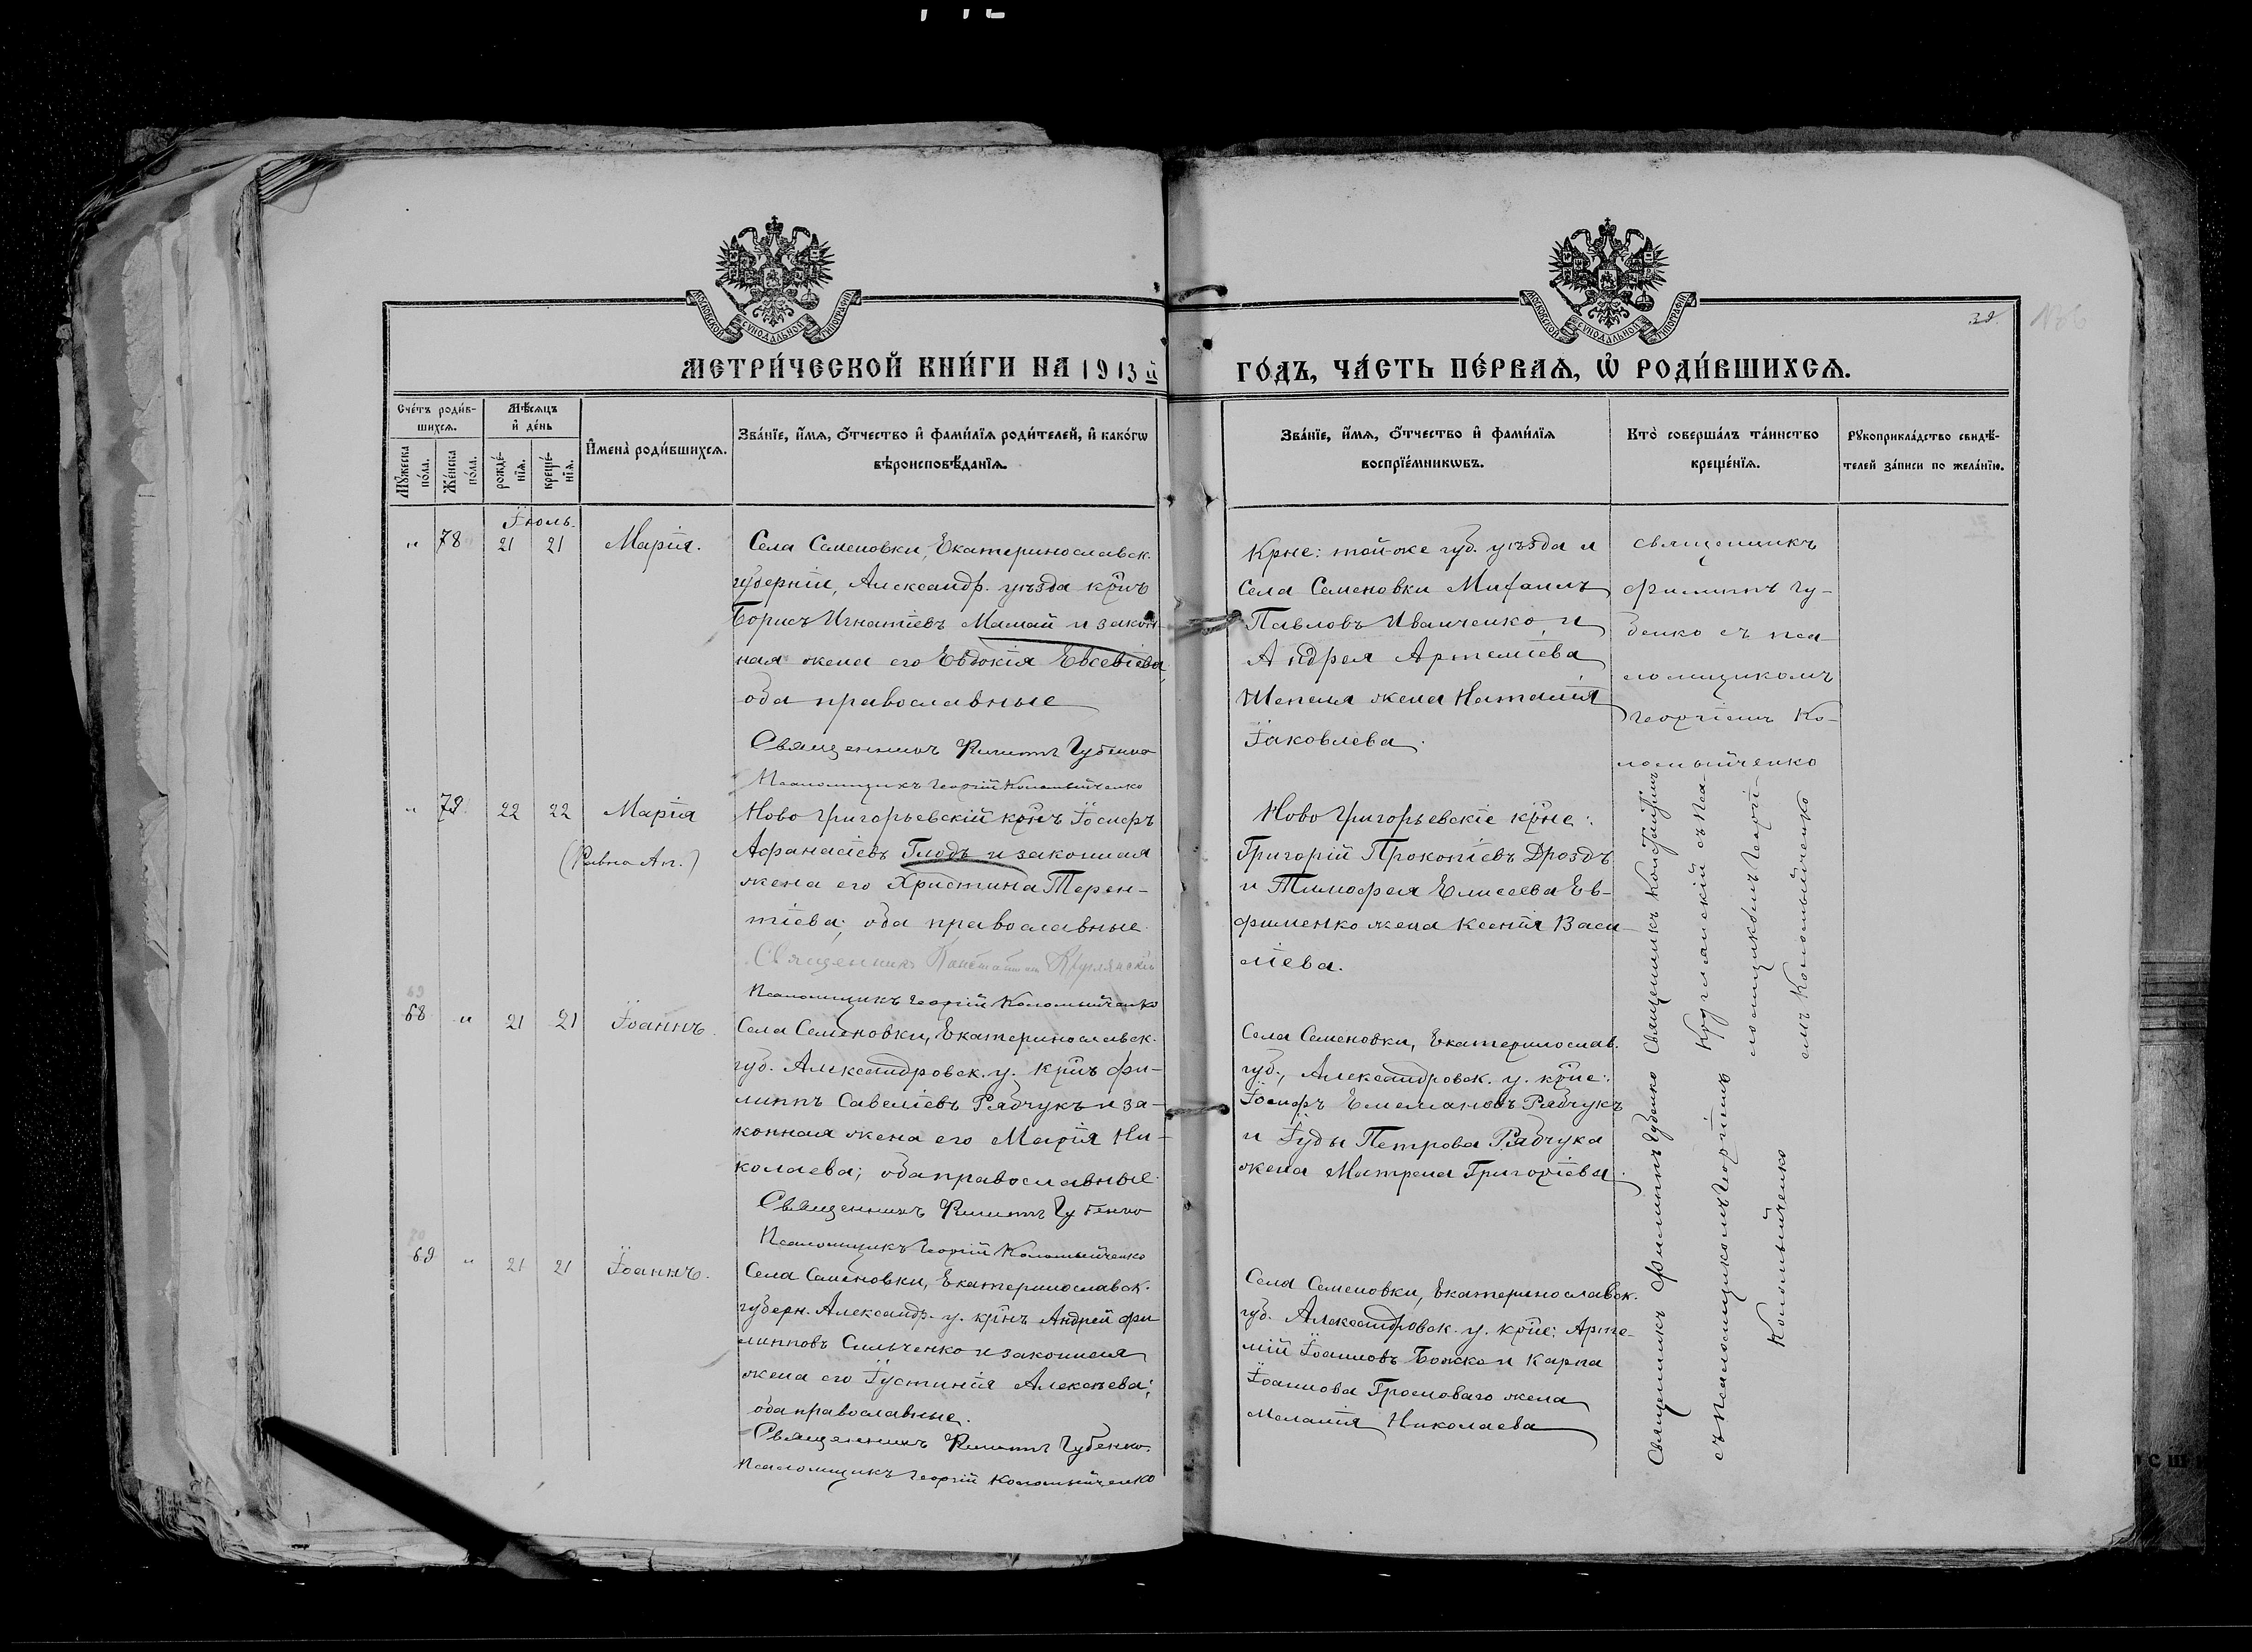 МОСКОВСКОЙ СУНОДАЛЬНОЙ ТИПОГРАФІИ
МОСКОВСКОЙ СУНОДАЛЬНОЙ ТИПОГРАФІИ
39.
МЕТРИ́ЧЕСКОЙ КНИ́ГИ НА 1913й
ГО́ДЪ, ЧА́СТЬ ПЕ́РВАѦ, Ѡ҆ РОДИ́ВШИХСѦ.
Сче́тъ роди́в-
шихсѧ.
Мꙋ́жеска по́ла.
Же́нска по́ла.
Мѣ́сѧцъ
и҆ де́нь
рожде́-
нїѧ.
креще́-
нїѧ.
И҆мена̀ роди́вшихсѧ.
Зва́нїе, и҆́мѧ, ѻ҆́тчество и҆ фами́лїѧ роди́телей, и҆ како́гѡ
вѣроисповѣ́данїѧ.
Зва́нїе, и҆́мѧ, ѻ҆́тчество и҆ фами́лїѧ
воспрїе́мникѡвъ.
Кто̀ соверша́лъ та́инство
креще́нїѧ.
Рꙋкоприкла́дство свидѣ́-
телей за́писи по жела́нїю.
Іюль.
" 78 21 21 Марія.
Села Семеновки, Екатеринославск.
губерніи, Александр. уѣзда крнъ
Борисъ Игнатіевъ Мамай и закон-
ная жена его Евдокія Евсевіева,
оба православные
Священникъ Филиппъ Губенко
Псаломщикъ Георгій Коломыйченко
Крне: той-же губ. уѣзда и
Села Семеновки Михаилъ
Павловъ Иванченко и
Андрея Артеміева
Шепеля жена Наталія
Іаковлева.
Священникъ
Филиппъ Гу-
бенко съ пса-
ломщикомъ
Георгіемъ Ко-
ломыйченко
" 79 22 22 Марія
(Равно Ап.)
Ново Григорьевскій крнъ Іосифъ
Афанасіевъ Глодъ и законная
жена его Христина Терен-
тіева; оба православные
Священникъ
Псаломщикъ Георгій Коломыйченко
Ново Григорьевскіе крне:
Григорій Прокопіевъ Дроздъ
и Тимофея Елисеева Ев-
фименко жена Ксенія Васи-
ліева.
Священникъ
съ Пса-
ломщикомъ Георгі-
емъ Коломыйченко
69
68 " 21 21 Іоаннъ.
Села Семеновки, Екатеринославск.
губ. Александровск. у. крнъ Фи-
липпъ Савеліевъ Рябчукъ и за-
конная жена его Марія Ни-
колаева; оба православные
Священникъ Филиппъ Губенко
Псаломщикъ Георгій Коломыйченко
Села Семеновки, Екатеринослав.
губ., Александровск. у. крне:
Іосифъ Емельяновъ Рябчукъ
и Іуды Петрова Рябчука
жена Матрена Григоріева.
Священникъ Филиппъ Губенко
съ Псаломщикомъ Георгіемъ
Коломыйченко
70
69 " 21 21 Іоаннъ.
Села Семеновки, Екатеринославск.
губерн. Александр. у. крнъ Андрей Фи
липповъ Сильченко и законная
жена его Іустинія Алексѣева;
оба православные.
Священникъ Филиппъ Губенко
Псаломщикъ Георгій Коломыйченко
Села Семеновки, Екатеринославск.
губ. Александровск. у. крне: Арте-
мій Іоанновъ Божко и Карпа
Іоаннова жена
Меланія Николаева